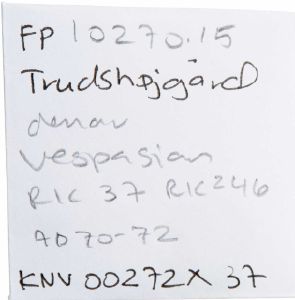 FP 10270.15
Trudshøjgård
denar
Vespasian
RIC 37 RIC 246
AD 70-72
KNV 00272X 37